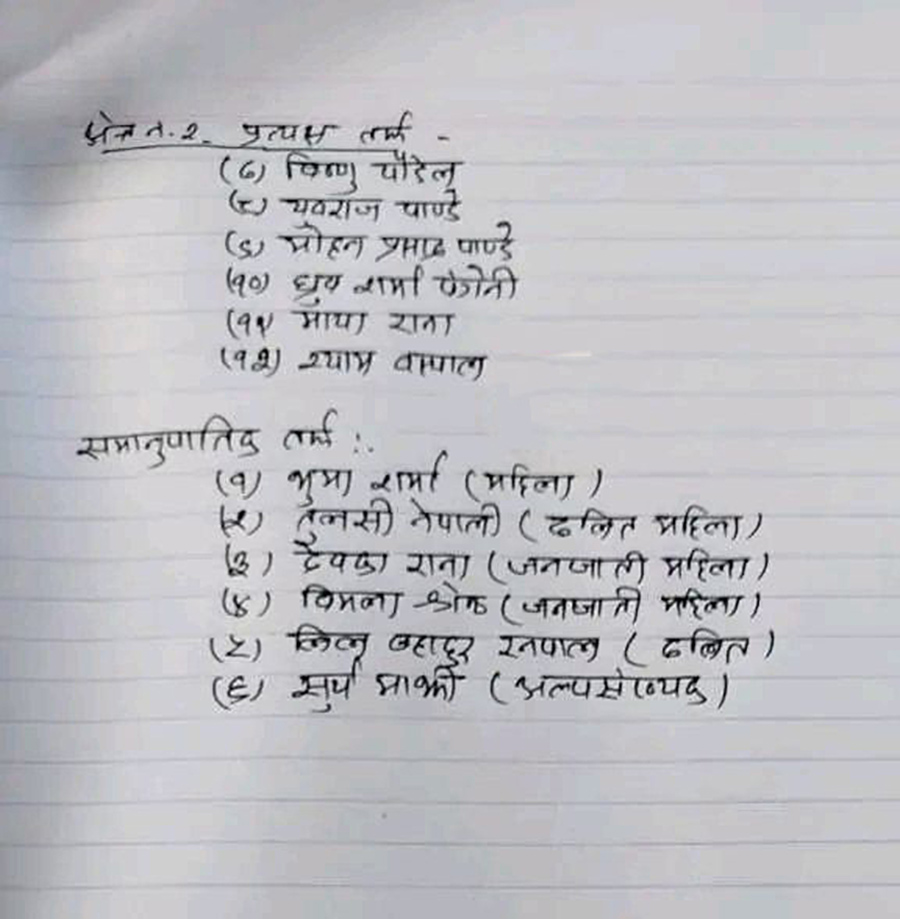 क्षेत्र नं. २ प्रत्यक्ष तर्फ -
(७) विष्णु पौडेल
(८) युवराज पाण्डे
(९) मोहन प्रसाद पाण्डे
(१०) ध्रुव शर्मा
(११) माया राना
(१२) श्याम
समानुपातिक तर्फ :-
(१) भुमा शर्मा (महिला)
(२) तुलसी नेपाली (दलित महिला)
(३) देवका राना (जनजाती महिला)
(४) विमला (जनजाती महिला)
(५) बहादुर (दलित)
(६) सुर्य माझी (अल्पसंख्यक)